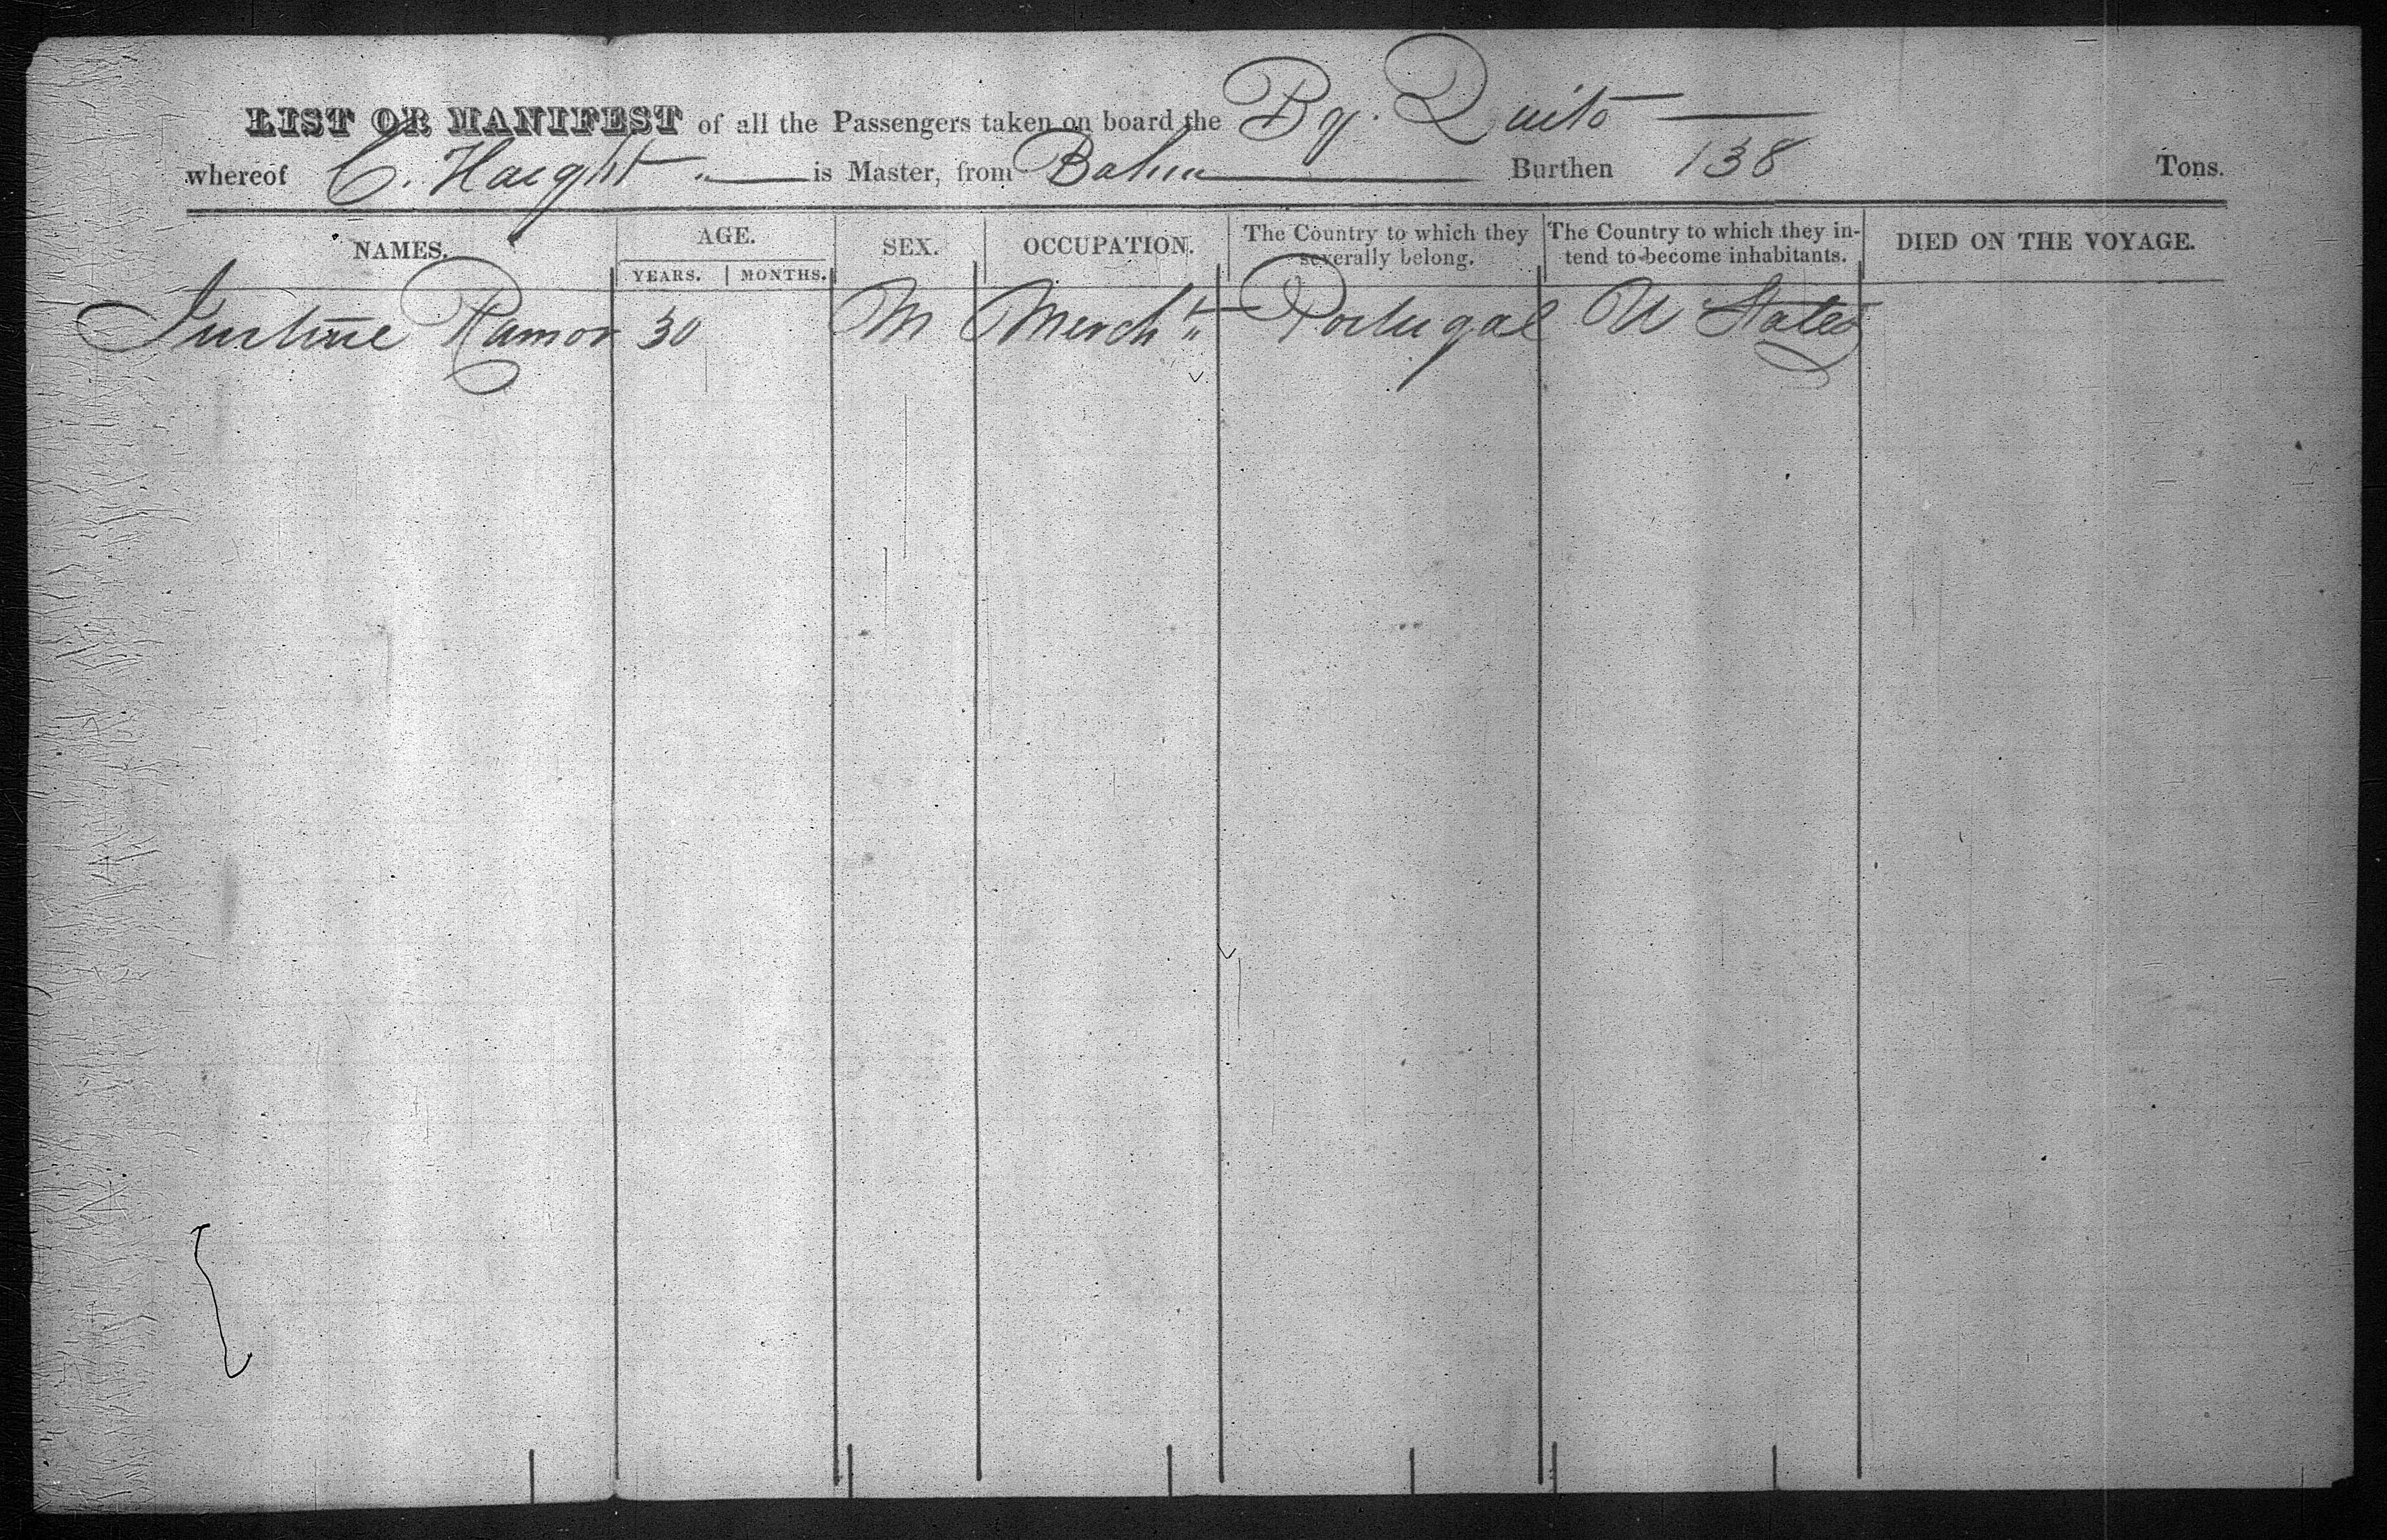 LIST OR MANIFEST of all the Passengers taken on board the Bg. Quito
whereof C. Haight is Master, from Bahia Burthen 138 Tons.
NAMES. AGE. SEX. OCCUPATION. The Country to which they severally belong. The Country to which they intend to become inhabitants. DIED ON THE VOYAGE.
YEARS. MONTHS.
Ramos 30 M Mercht Portugal U States